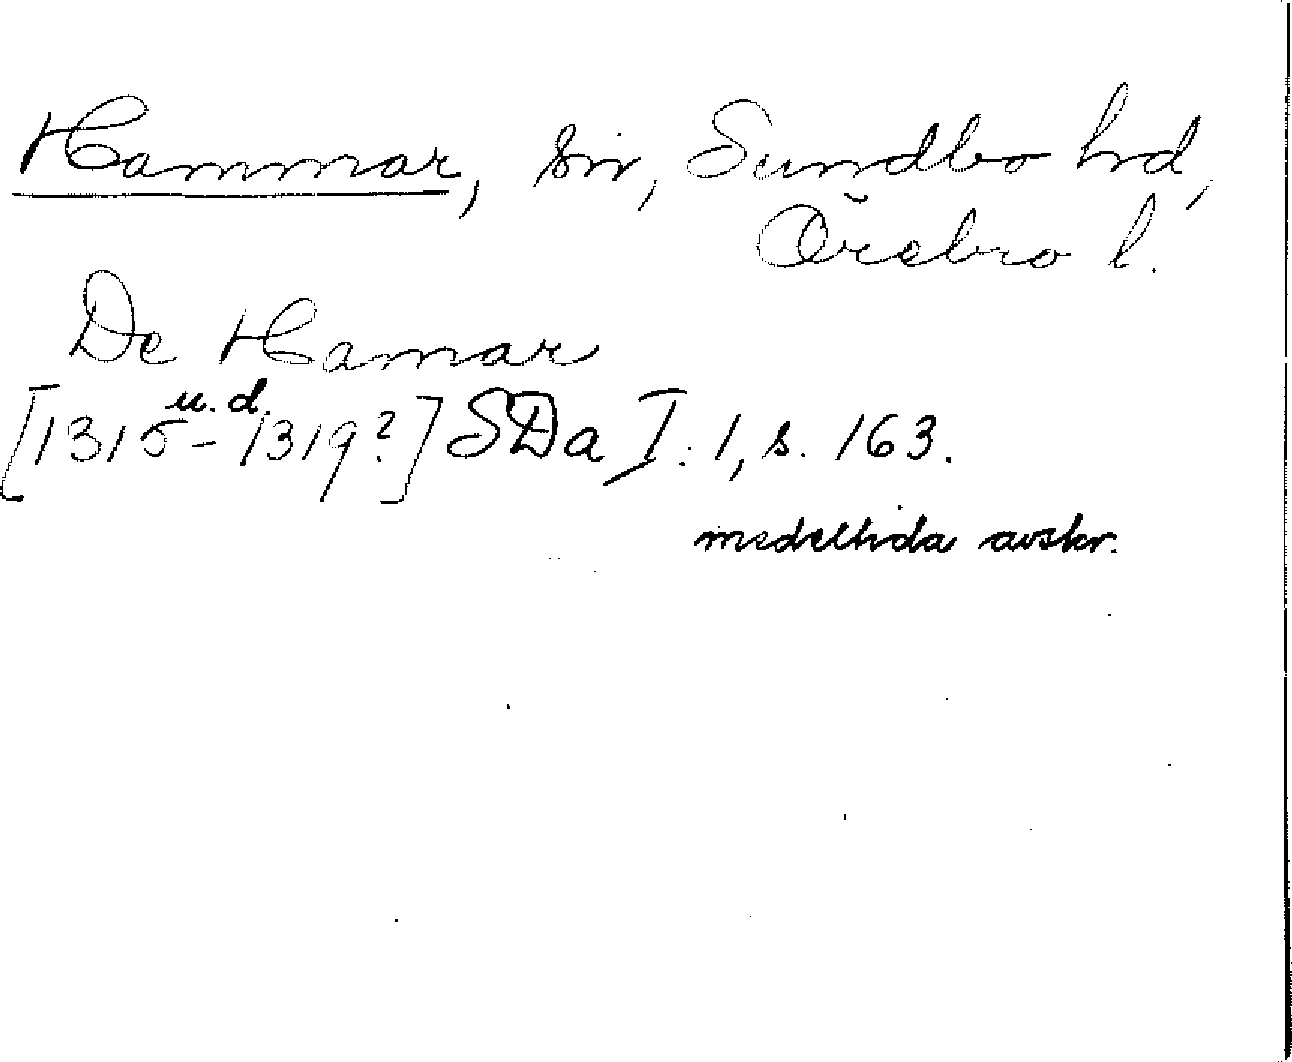 Hammar, sn, Sundbo hd,
Örebro l.
De Hamar
u. d.
[1315-1319?] SDa I:1, s. 163.
medeltida avskr.